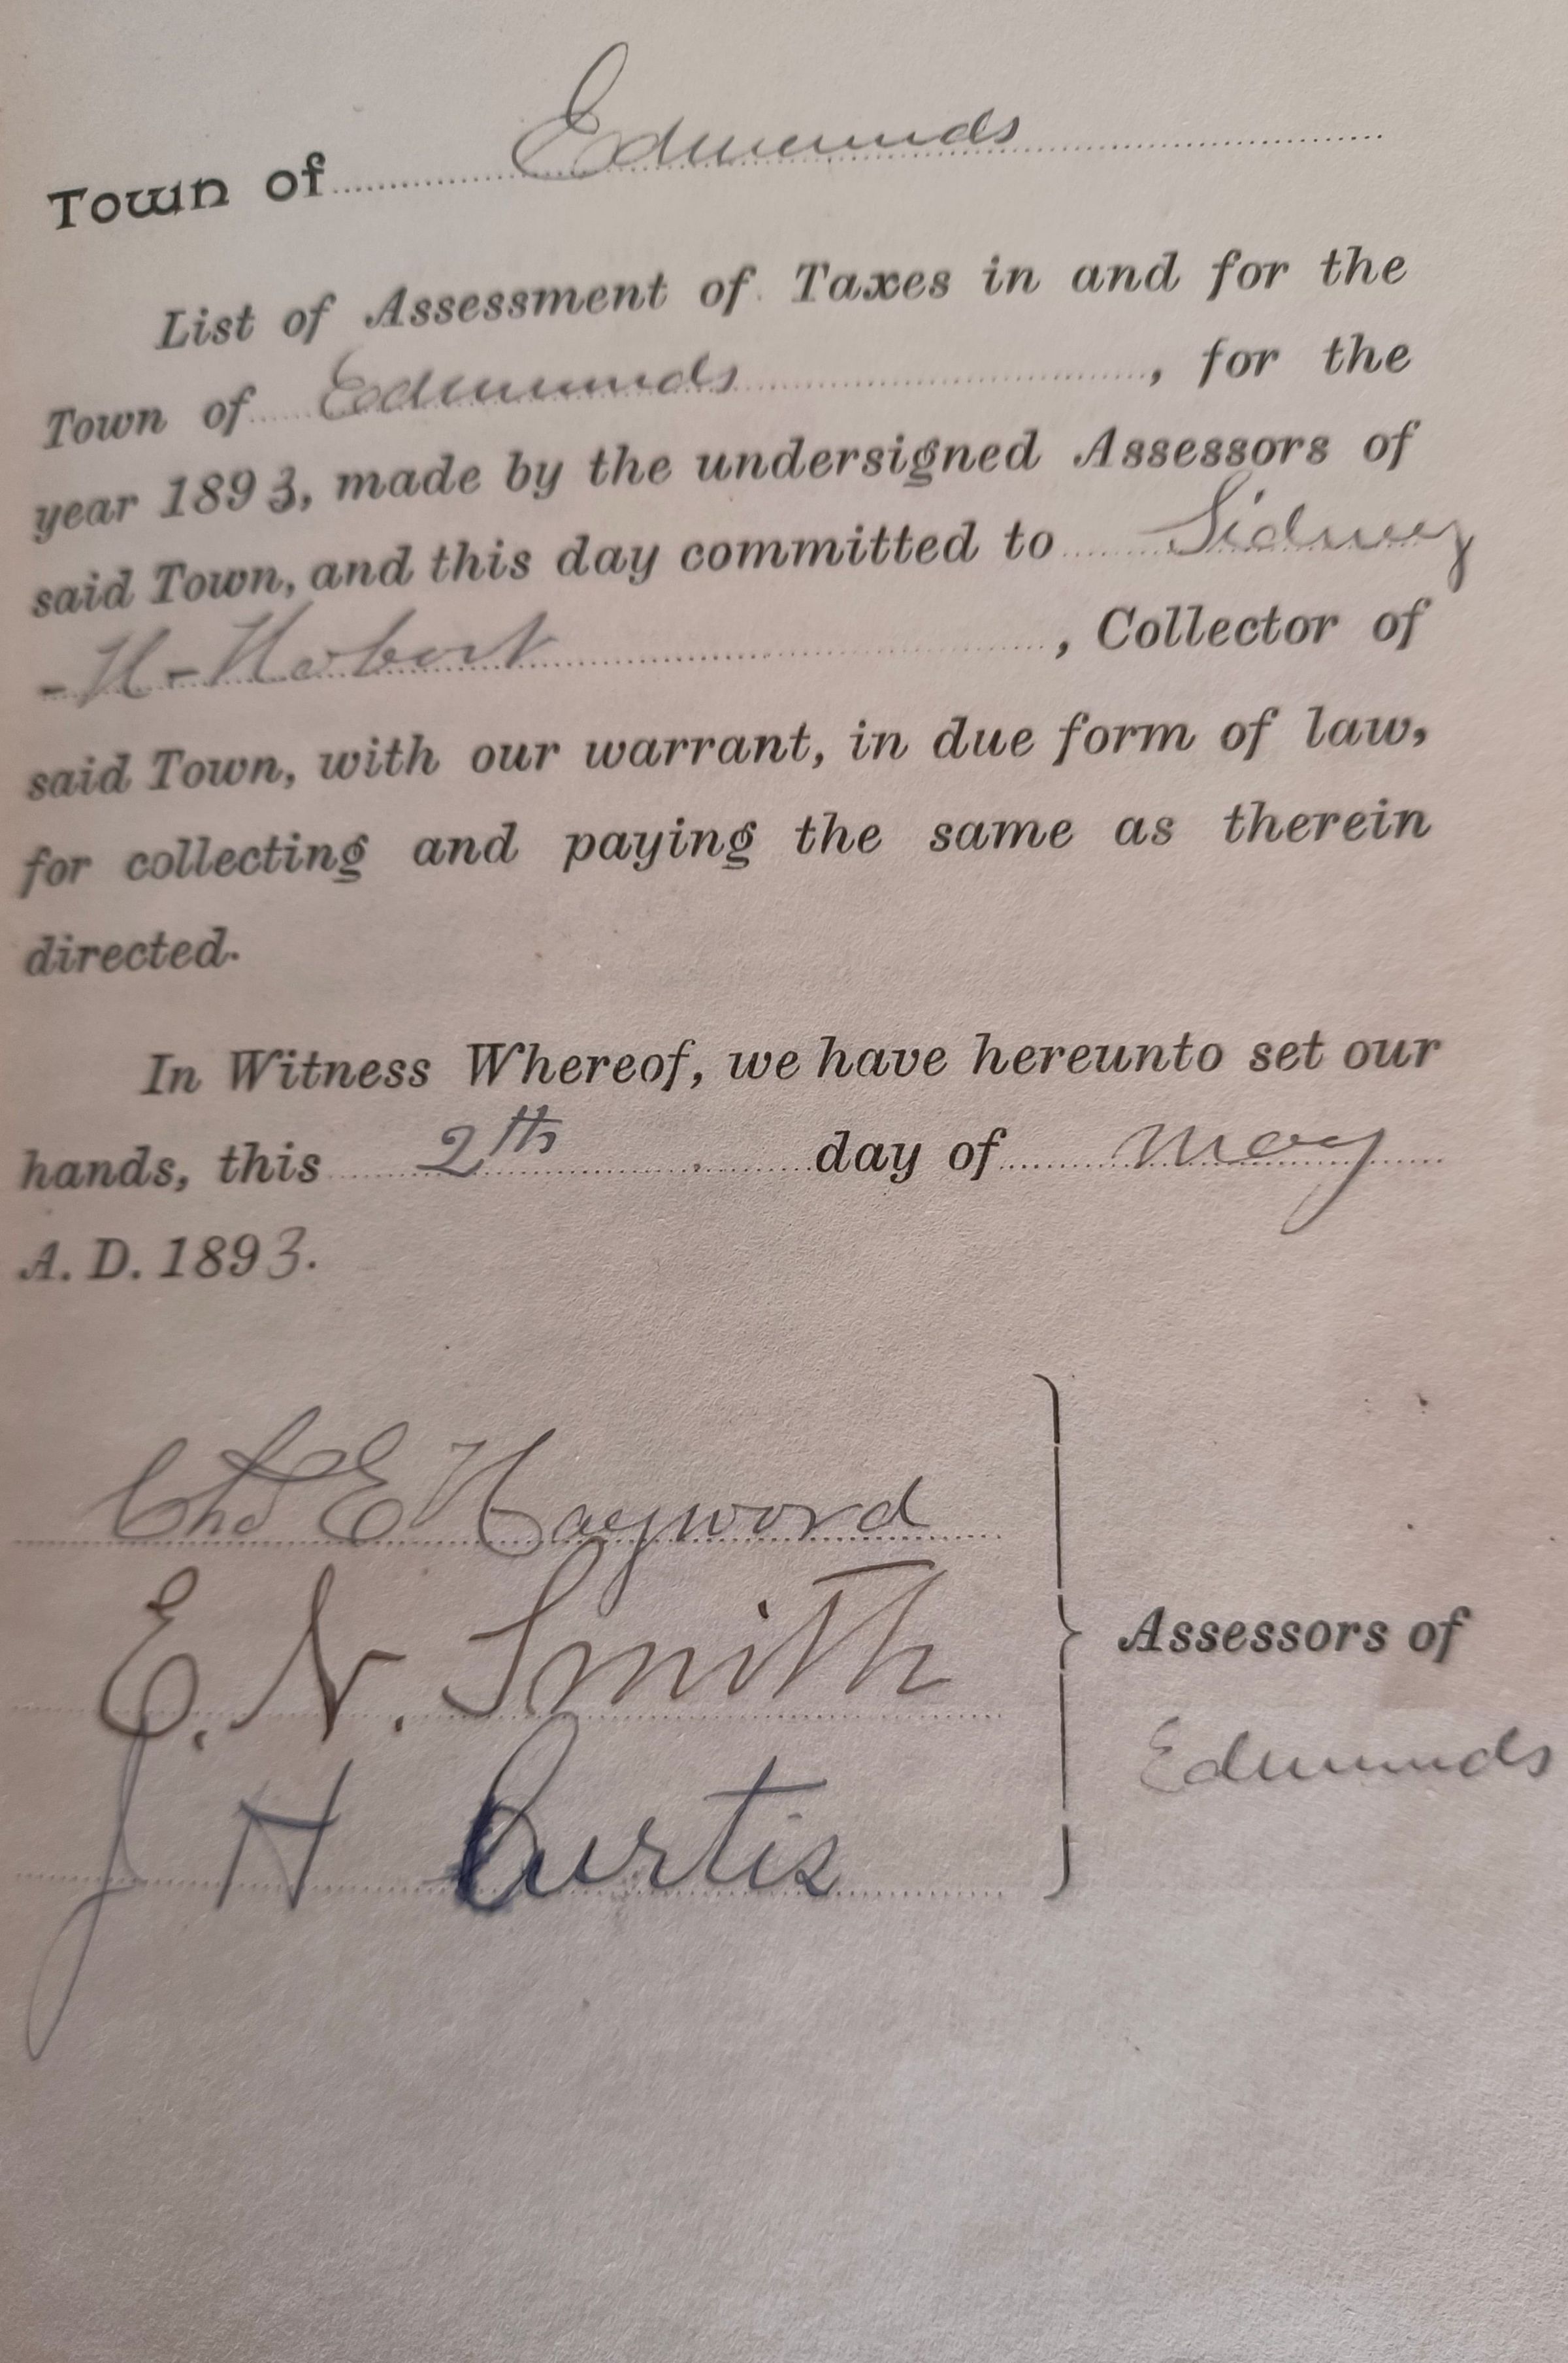 Town of Edmunds
List of Assessment of Taxes in and for the
Town of Edmunds, for the
year 1893, made by the undersigned Assessors of
said Town, and this day committed to Sidney
-H- Hobart, Collector of
said Town, with our warrant, in due form of law,
for collecting and paying the same as therein
directed.
In Witness Whereof, we have hereunto set our
hands, this 2th day of May
A. D. 1893.
Chas E Hayward
E. N. Smith
J H Curtis
Assessors of
Edmunds